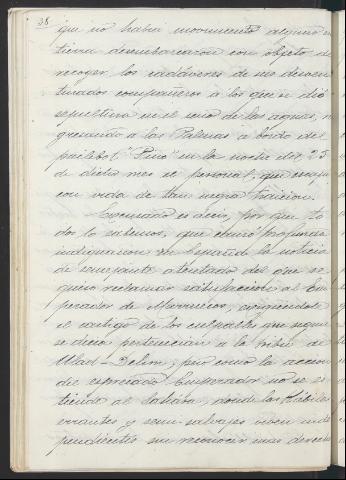 38
que no había movimiento alguno en
tierra desembarcaron con objeto de
recoger los cadáveres de sus desven-
turados compañeros a los que se dió
sepultura en el seno de las aguas, re-
gresando a las Palmas a bordo del
pailebot "Pino" en la noche del 25
de dicho mes el personal que escapó
con vida de tan negra traicion.
Escusado es decir, por que to-
dos lo sabemos, que causó profunda
indignacion en España la noticia
de semejante atentado del que se
quiso reclamar satisfaccion al Em-
perador de Marruecos, exigiéndole
el castigo de los culpables que segun
se decia pertenecian a la tribu de
Ulad-Delim; pero como la accion
del espresado Emperador no se es-
tiende al Sahara, donde las Kábilas
errantes y semi-salvajes viven inde-
pendientes sin reconocer mas derecho